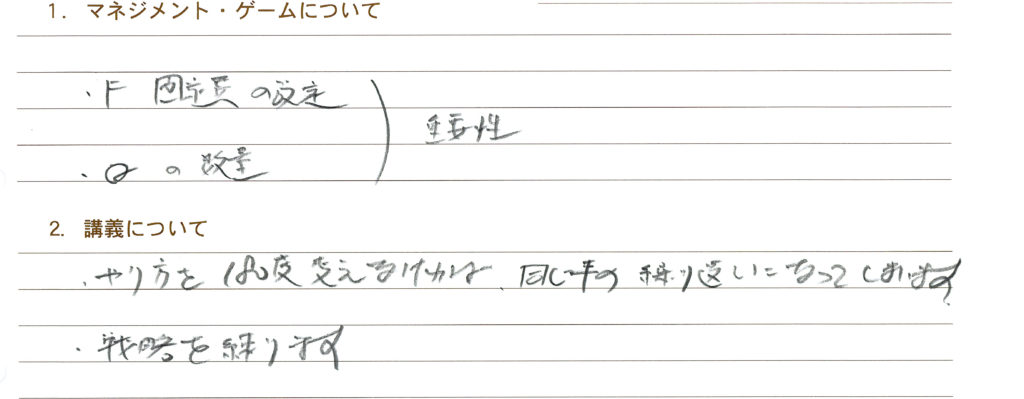 1. マネジメント・ゲームについて
・F 固定費の設定
重要性
・Qの数量
2. 講義について
・やり方を180度変えなければ、同じ年の繰り返しになってしまいます。
・戦略を練ります